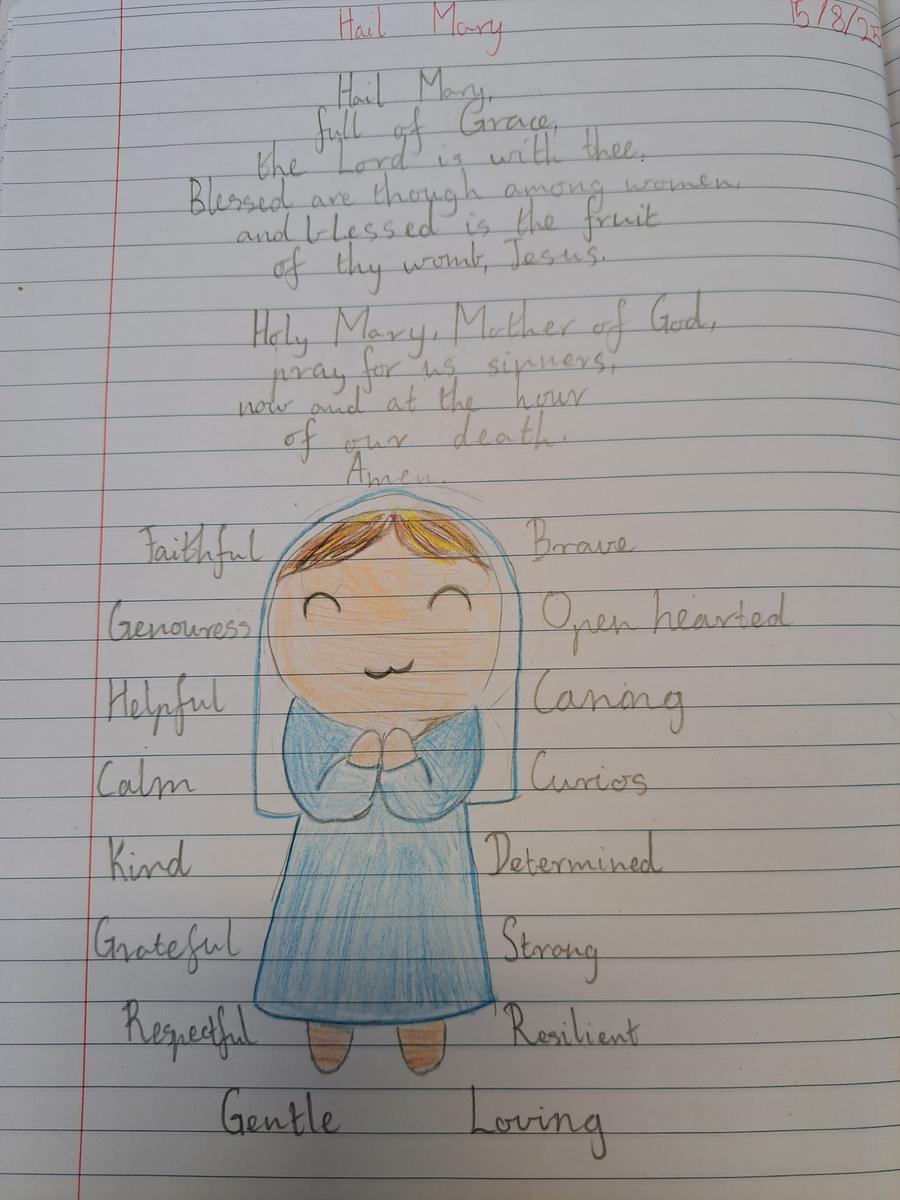 Hail Mary 15/8/25
Hail Mary,
full of Grace,
the Lord is with thee.
Blessed are though among women,
and blessed is the fruit
of thy womb, Jesus.
Holy Mary, Mother of God,
pray for us sinners,
now and at the hour
of our death.
Amen.
Faithful Brave
Genouress Open hearted
Helpful Caring
Calm Curios
Kind Determined
Grateful Strong
Respectful Resilient
Gentle Loving